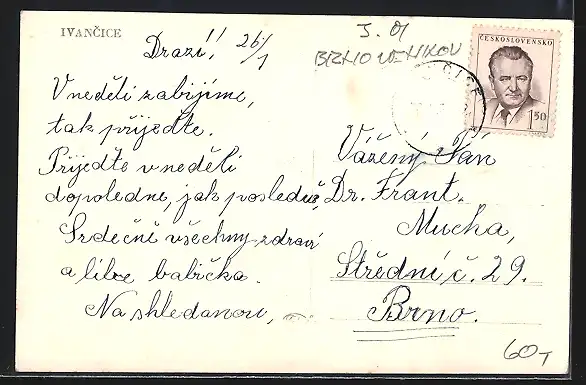 IVANČICE
Drazí!! 26/1
V neděli zabijíme,
tak přijeďte.
Přijeďte v neděli
dopoledne, jak posledně,
Srdečně všechny zdraví
a líbe babička.
Na shledanou,
J. 01
BRNO
ČESKOSLOVENSKO
1.50
Vážený Pán
Dr. Frant.
Mucha,
Střední č. 29.
Brno.
60T